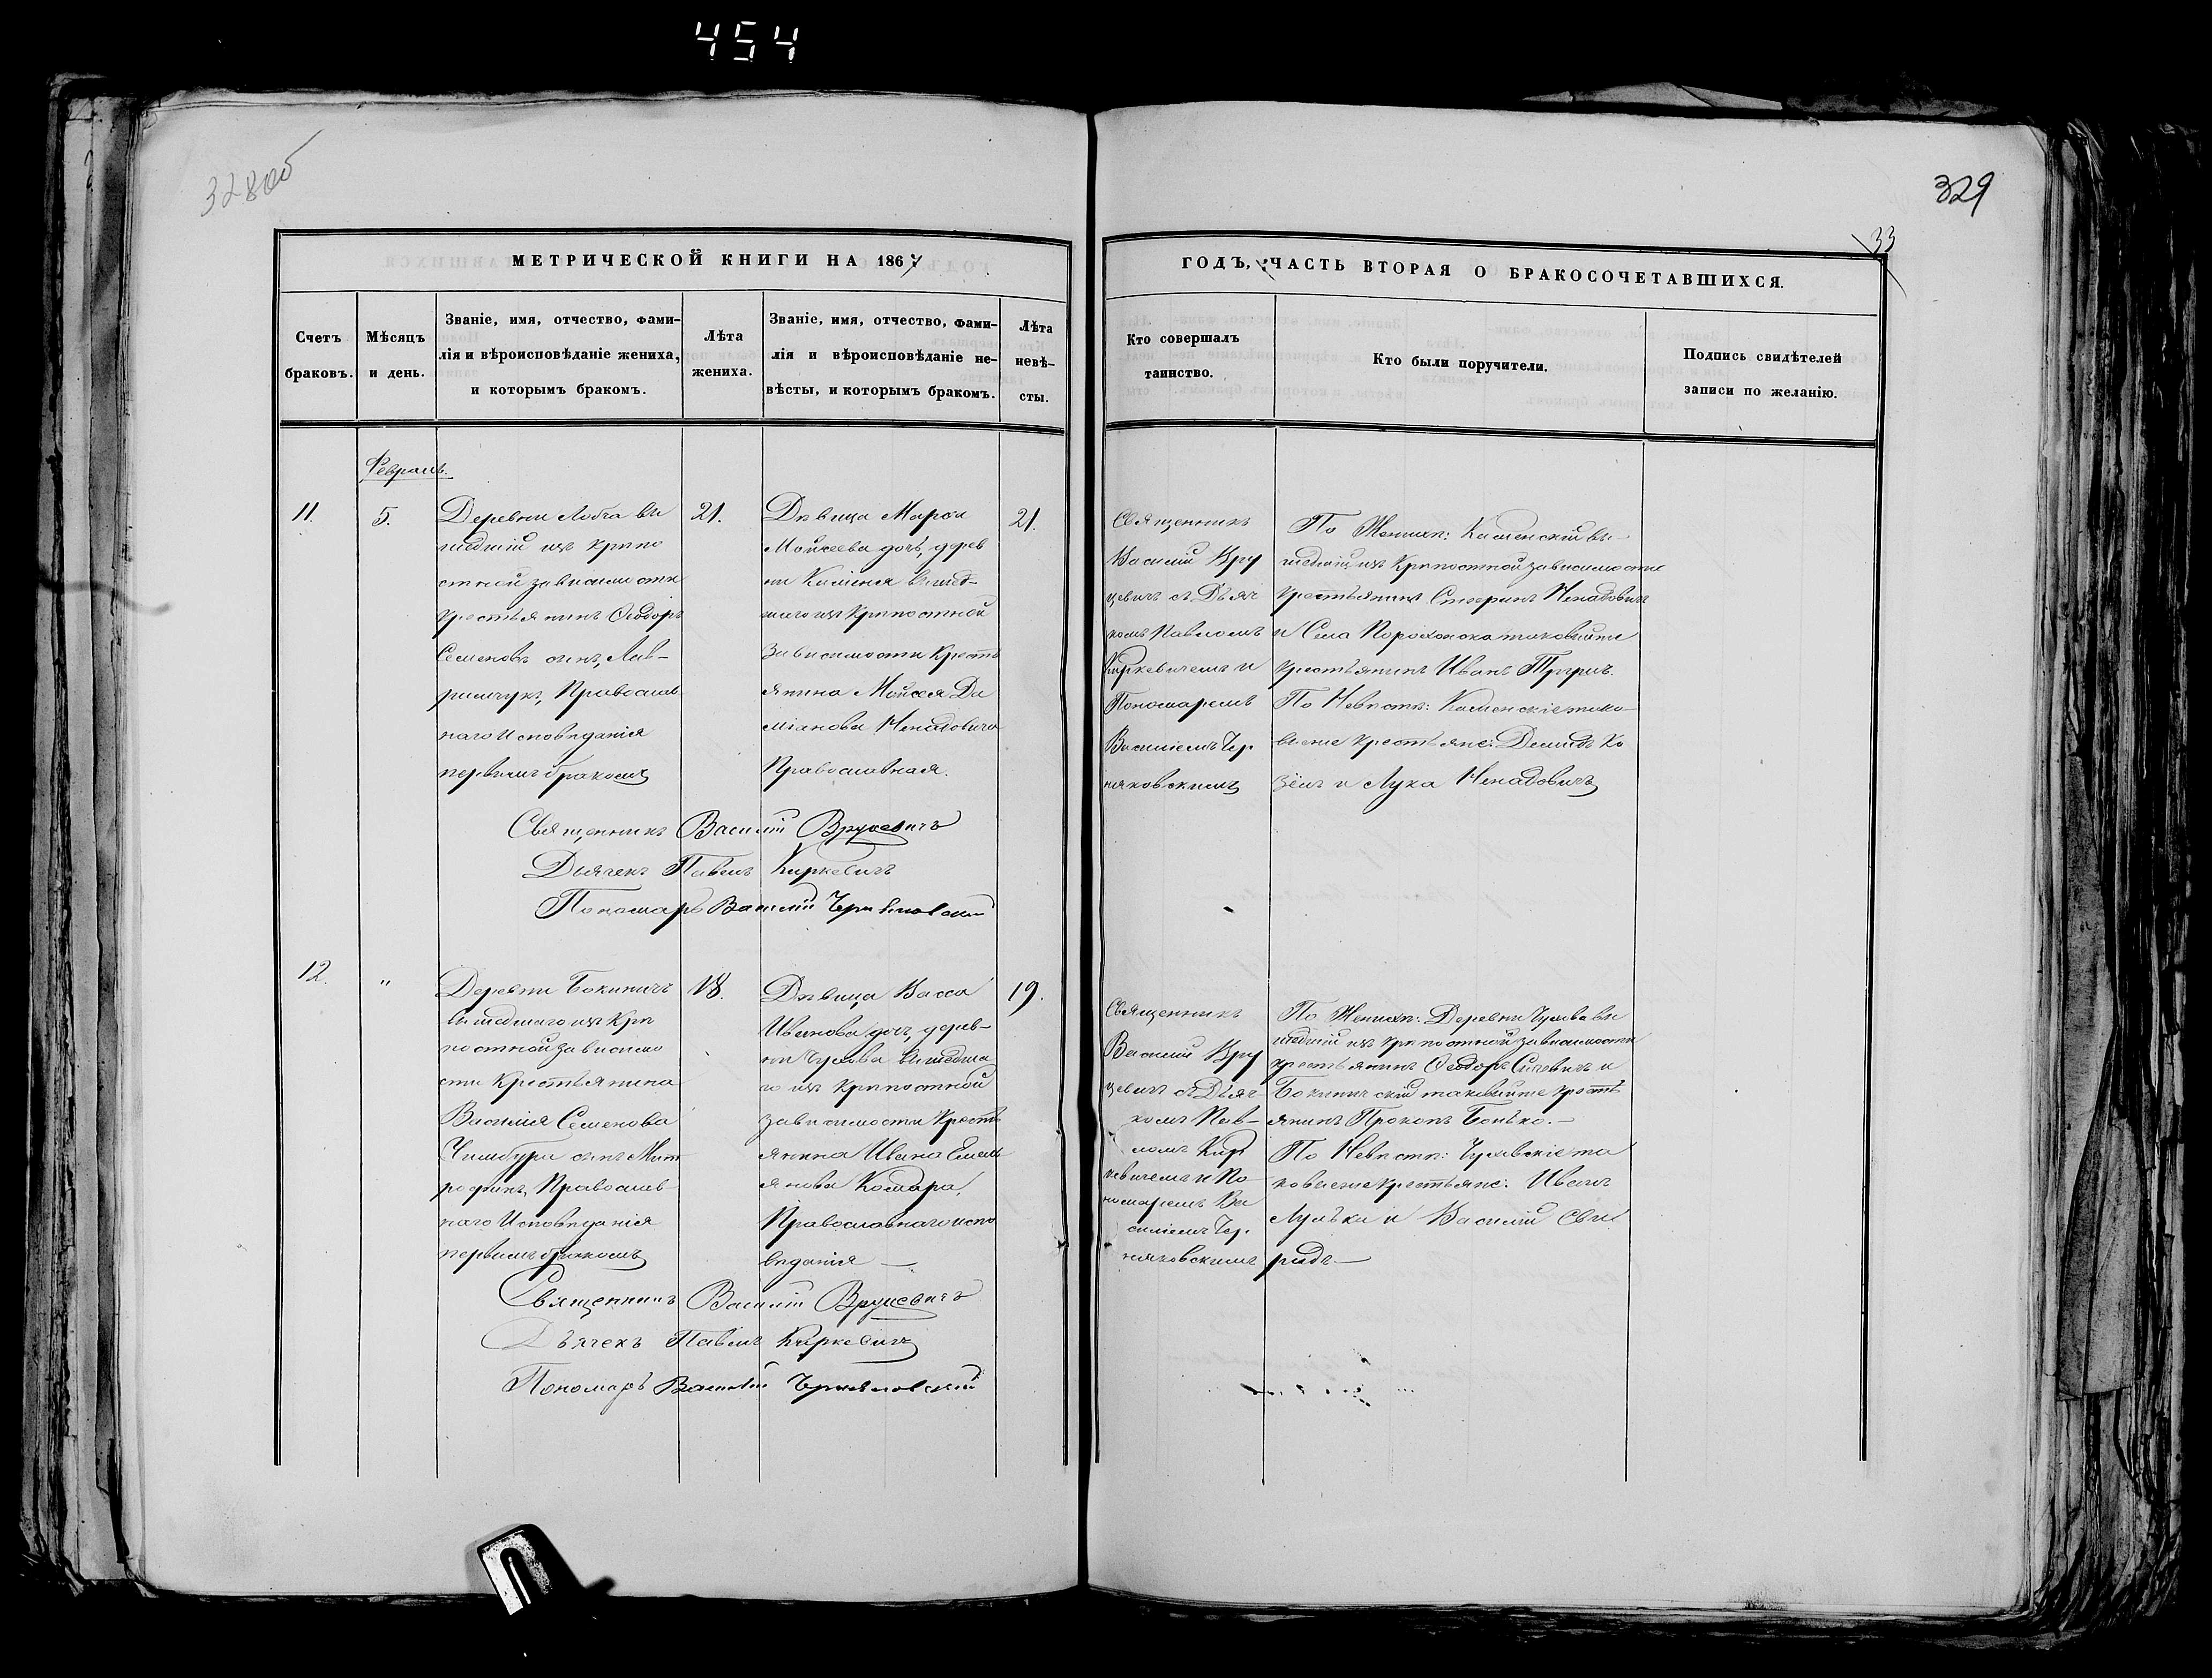 454
328об
329
33
МЕТРИЧЕСКОЙ КНИГИ НА 1867
ГОДЪ, ЧАСТЬ ВТОРАЯ О БРАКОСОЧЕТАВШИХСЯ.
Счетъ браковъ.
Мѣсяцъ и день.
Званіе, имя, отчество, фами-
лія и вѣроисповѣданіе жениха,
и которымъ бракомъ.
Лѣта
жениха.
Званіе, имя, отчество, фами-
лія и вѣроисповѣданіе не-
вѣсты, и которымъ бракомъ.
Лѣта
невѣ-
сты.
Кто совершалъ
таинство.
Кто были поручители.
Подпись свидѣтелей
записи по желанію.
Февраль.
11.
5.
Деревни Лобча вы
шедшій изъ крѣпо
стной зависимости
крестьянинъ Ѳеодоръ
Семеновъ сынъ, Лав-
ринчукъ, Православ
наго Исповѣданія
первымъ бракомъ
21.
Дѣвица Марѳа
Мойсеева дочь, дерев
ни Каменя вышед-
шаго изъ Крѣпостной
зависимости Кресть
янина Мойсея Да
міанова Ненадовича
Православная.
21.
Священникъ
Василій Вру
цевичъ съ Дьяч
комъ Павломъ
Киркевичемъ и
Пономаремъ
Василіемъ Чер
няковскимъ
По Женихѣ: Каменскій вы-
шедшій изъ Крѣпостной зависимости
крестьянинъ Ненадовичъ
и Села Порохонска таковыйже
крестьянинъ Иванъ
По Невѣстѣ: Каменскіе тако-
выеже крестьяне: Демидъ Ко
зёлъ и Лука Ненадовичъ
Священникъ Василій Вруцевичъ
Дьячекъ Павелъ Киркевичъ
Пономарь Василій Черняковскій
12.
"
Деревни Бокиничъ
вышедшаго изъ Крѣ
постной зависимо
сти Крестьянина
Василія Семенова
Чимбура сынъ Мит
рофанъ, Православ
наго Исповѣданія
первымъ бракомъ
18.
Дѣвица Васса
Иванова дочь, дерев-
ни Чухова вышедша
го изъ Крѣпостной
зависимости Кресть
янина Ивана Емель
янова Комара,
Православнаго испо
вѣданія —
19.
Священникъ
Василій Вру
цевичъ съ Дьяч
комъ Пав-
ломъ Кир
кевичемъ и По-
номаремъ Ва
силіемъ Чер.
няковскимъ
По Женихѣ: Деревни Чухова вы
шедшій изъ крѣпостной зависимости
крестьянинъ Ѳеодоръ и
Бокиничскій таковыйже кресть
янинъ Прокопъ Бонько. —
По Невѣстѣ: Чуховскіе та
ковыеже крестьяне: Иванъ
и Василій Сви
ридъ —
Священникъ Василій Вруцевичъ
Дьячекъ Павелъ Киркевичъ
Пономарь Василій Черняковскій